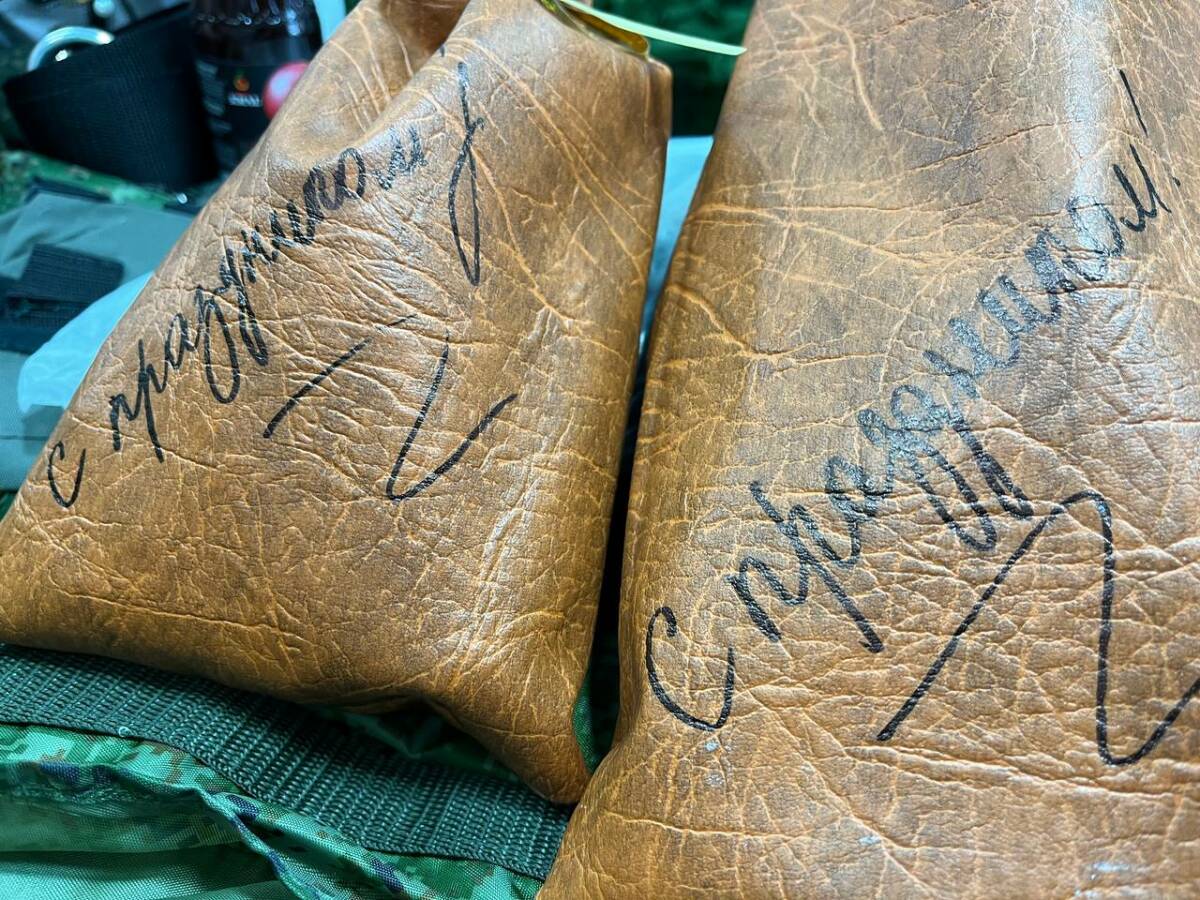 с праздником!
С праздником!